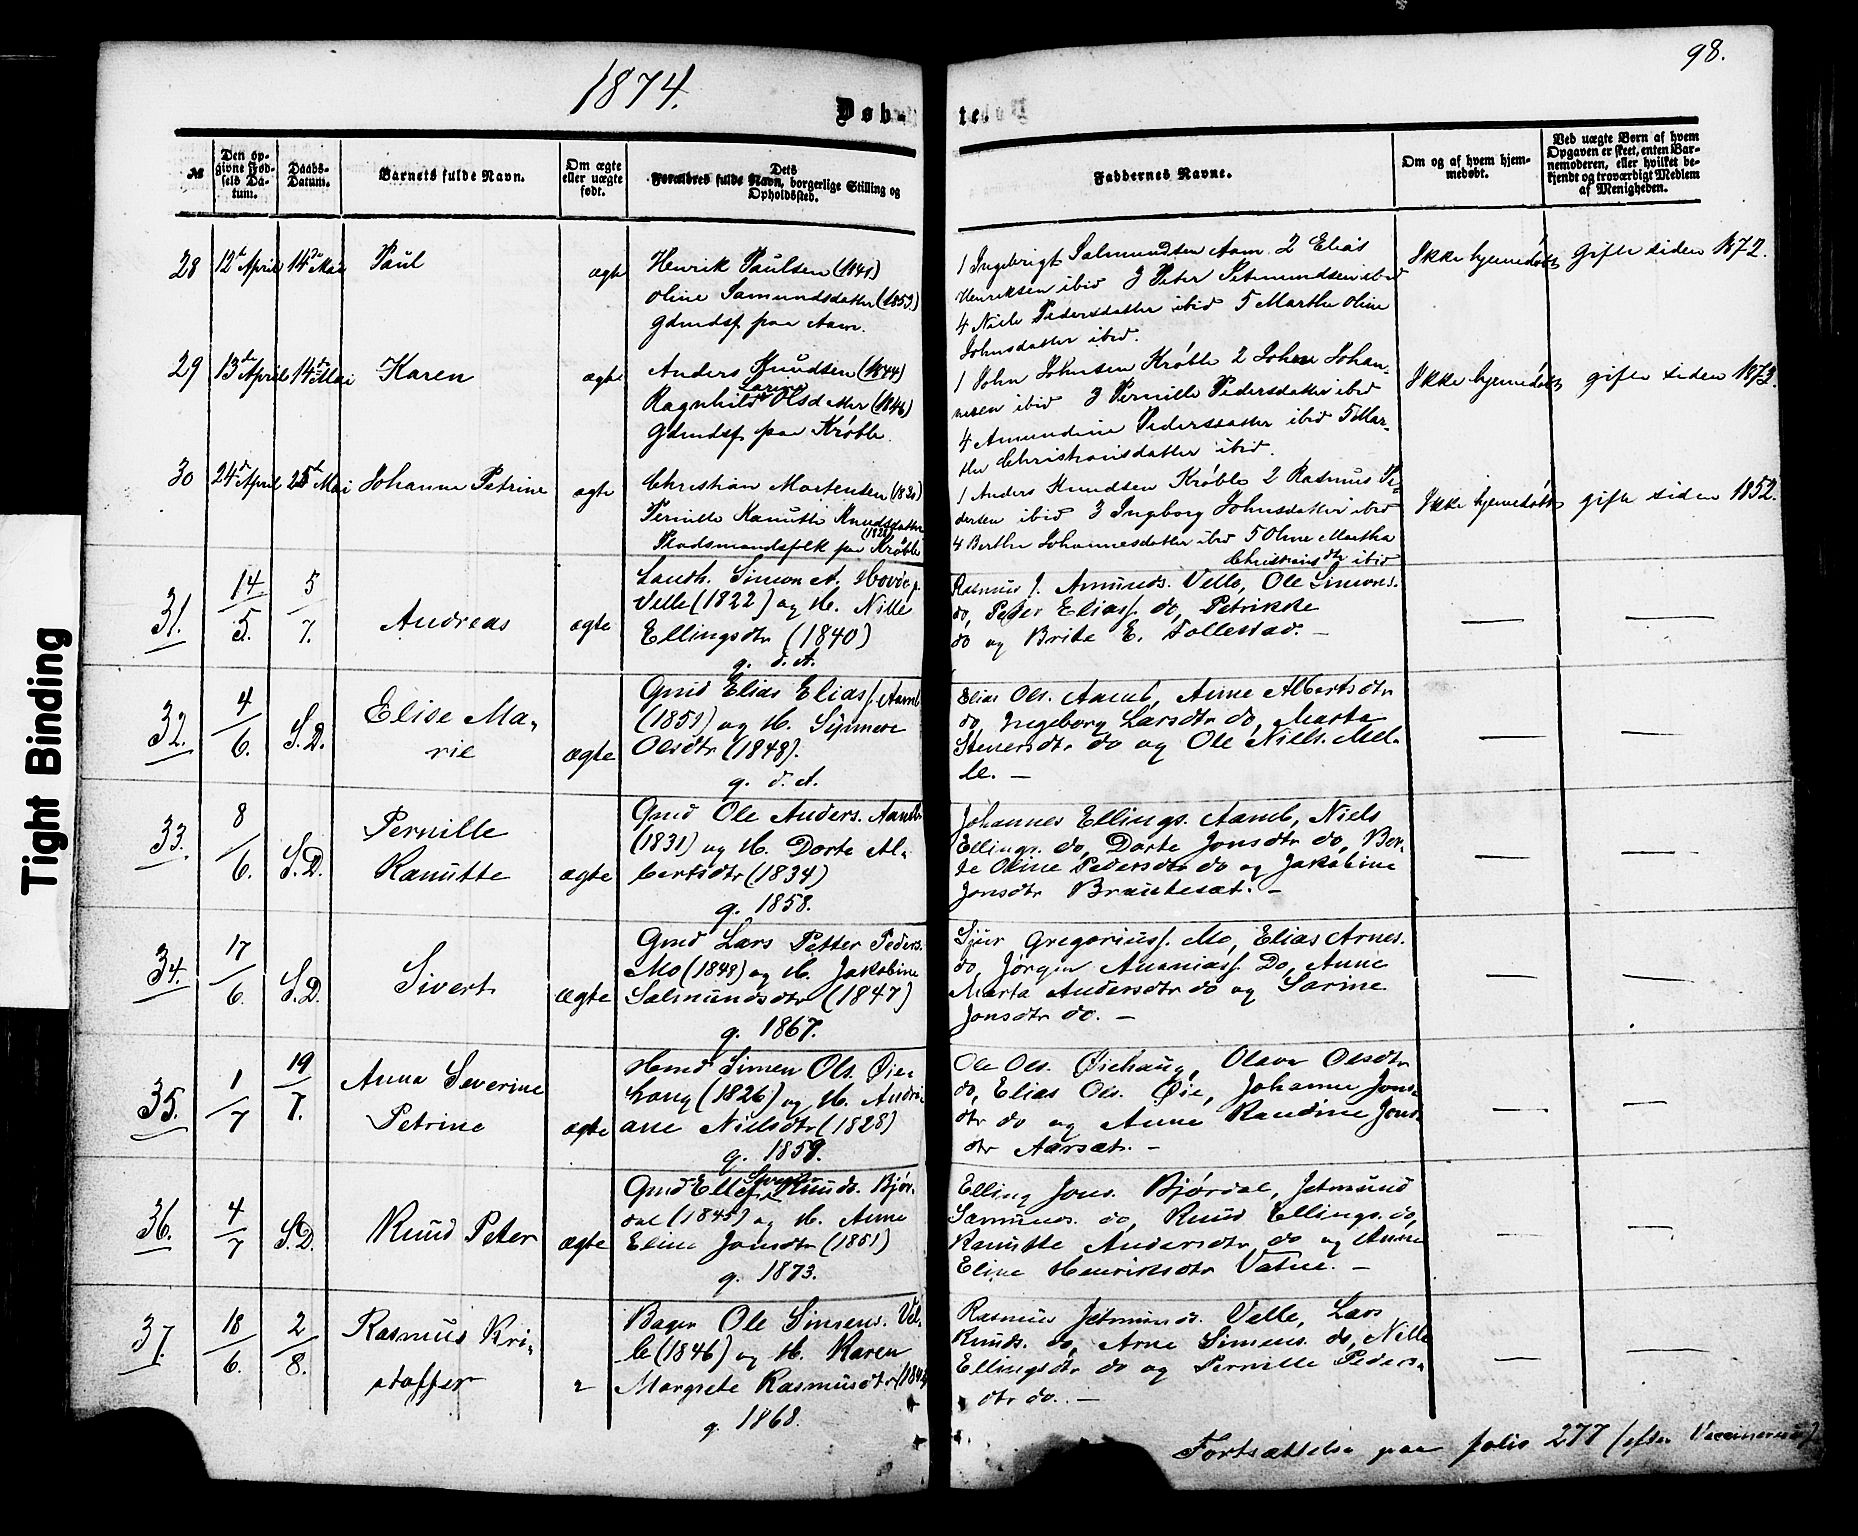 98.
1874.
Døb-
te
№
Den op-
givne Fød-
sels Da-
tum.
Daabs-
Datum.
Barnets fulde Navn.
Om ægte
eller uægte
født.
Dets
Forældres fulde Navn, borgerlige Stilling og
Opholdssted.
Faddernes Navne.
Om og af hvem hjem-
medøbt.
Ved uægte Børn af hvem
Opgaven er skeet, enten Bar-
nemoderen, eller hvilket be-
kjendt og troværdigt Medlem
af Menigheden.
28 12te April 14de Mai Paul ægte
Henrik Paulsen
Oline Samundsdatter (1853)
Gdmdsf. paa Aam.
1 Ingebrigt Salmundsen Aam 2 Elias
Henriksen ibid 3 Peter Jetmundsen ibid
4 Nille Pedersdatter ibid 5 Marthe Oline
Johnsdatter ibid.
Ikke hjemedøbt gifte siden 1872.
29 13de April 14de Mai Karen ægte
Anders Knudsen (1844)
Larine
Ragnhild Olsdatter (1846)
Gdmdsf. paa Krøble.
1 John Johnsen Krøble 2 Johan Johan-
nesen ibid 3 Pernille Pedersdatter ibid
4 Amundine Pedersdatter ibid 5 Mar-
the Christiansdatter ibid.
Ikke hjemedøbt gifte siden 1873.
30 24de April 25de Mai Johanne Petrine ægte
Christian Mortensen (1830)
Pernille Kanutte Knudsdatter
(1828)
Pladsmandsfolk paa Krøble
1 Anders Knudsen Krøble 2 Rasmus Pe-
dersen ibid 3 Ingeborg Johnsdatter ibid
4 Berthe Johannesdatter ibid 5 Oline Martha
Christiansdtr ibid
Ikke hjemedøbt gifte siden 1852.
31. 14/5. 5/7. Andreas ægte
Landh. Simon A. Hovde p.
Velle (1822) og H. Nille
Ellingsdtr (1840)
g. d. A.
Rasmus J. Amunds. Velle, Ole Simons.
do, Peder Eliass. do, Petrikke
do og Brite E. Follestad. —
32. 4/6. S.D. Elise Ma-
rie ægte
Gmd Elias Eliass. Aamb
(1851) og H. Synnøve
Olsdtr (1848).
g. d. A.
Elias Ols. Aamb, Anne Albertsdtr
do, Ingeborg Larsdtr do, Marta
Stenersdtr do og Ole Niels. Mel-
le. —
33. 8/6. S.D. Pernille
Kanutte ægte
Gmd Ole Anders. Aamb
(1831) og H. Dorte Al-
bertsdtr (1834)
g. 1858.
Johannes Ellings. Aamb, Niels
Ellings. do, Dorte Jonsdtr do, Ber-
te Oline Pedersdtr do og Jakobine
Jonsdtr Brautesæt. —
34. 17/6. S.D. Sivert ægte
Gmd Lars Petter Peders.
Mo (1848) og H. Jakobine
Salmundsdtr (1847)
g. 1867.
Sjur Gregoriuss. Mo, Elias Arnes.
do, Jørgen Ananiass. Do, Anne
Marta Andersdtr do og Sarine
Jonsdtr do. —
35. 1/7 19/7. Anna Severine
Petrine ægte
Hmd Simen Ols. Øie-
haug (1826) og H. Andri-
ane Nielsdtr (1828)
g. 1859.
Ole Ols. Øiehaug, Olave Olsdtr
do, Elias Ols. Øie, Johanne Jons-
dtr do og Anne Randine Jons-
dtr Aarsæt. —
36. 4/7 S.D. Knud Peter ægte
Sivert
Gmd Ellef Knuds. Bjør-
dal (1845) og H. Anne
Eline Jonsdtr (1851)
g. 1873.
Elling Jons. Bjørdal, Jetmund
Samunds. do, Knud Ellings. do,
Kanutte Andersdtr do og Anne
Eline Henriksdtr Vatne. —
37. 18/6. 2/8. Rasmus Kri-
stoffer
Bager Ole Simens. Vel-
le (1846) og H. Karen
Margrete Rasmusdtr
g. 1868.
Rasmus Jetmunds. Velle, Lars
Knuds. do, Arne Simens. do, Nille
Ellingsdtr do og Pernille Peders-
dtr do. —
Fortsættelse paa folio 277 (efter Vaccinerede)
Tight Binding